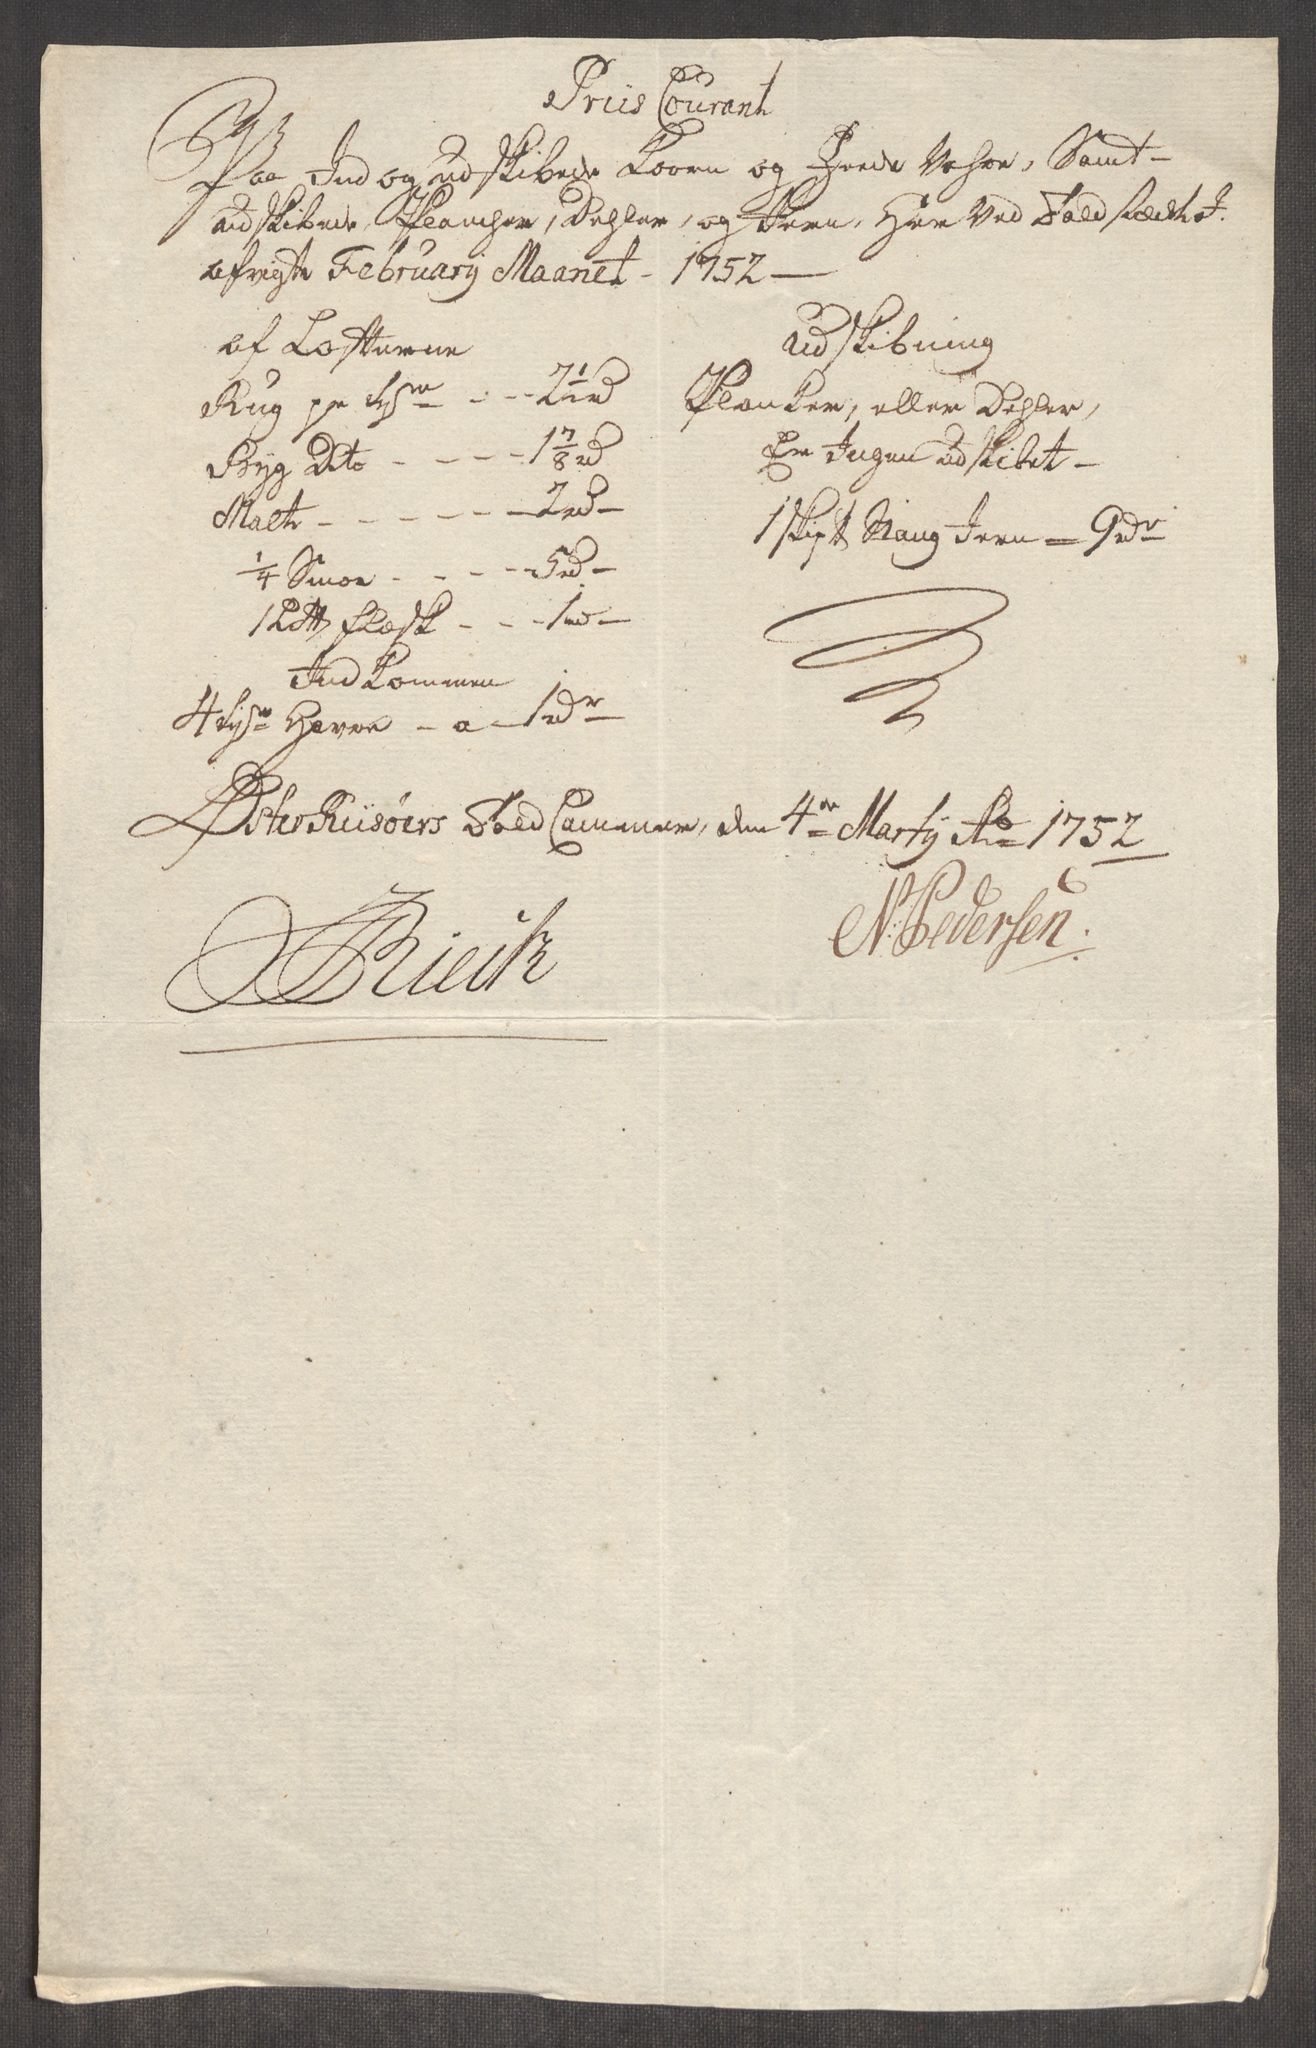 Priis Courant
Paa Ind og udskibede Korn og Feede Vahre, Samt
udskibede Plancher, Dehler, og Jern, Her Ved Toldstædet I
afvigte February Maanet 1752
af Losterne
Rug pr tÿnr - - - 2 1/2 rd
Bÿg Dto - - - - 1 7/8 rd
Malt - - - - - - 2 rd
1/4 Smør - - - - 5 rd
1 L℔ flæsk - - - 1 rd
Ind Kommen
4 tÿnr Havre - a - 1 rdr
Udskibning
Planker, eller Dehler,
Er Ingen udskibet
1 Skip℔ Stang Jern = 9 rdr
Øster Riisøers Told Cammer, den 4de Martÿ Ao 1752
Rieck
N: Pedersen.